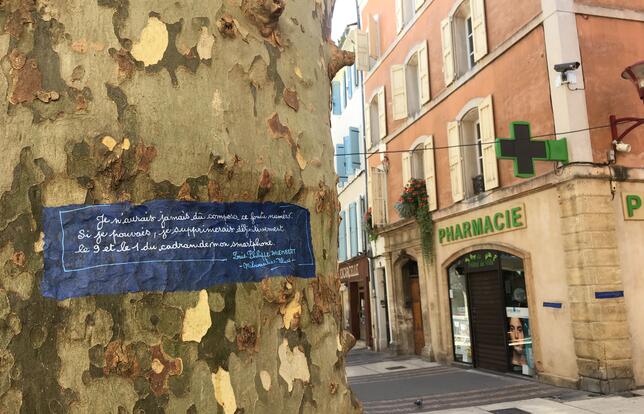 Je n'aurais jamais dû composer ce foutu numéro.
Si je pouvais, je supprimerais définitivement
le 9 et le 1 du cadran de mon smartphone.
PHARMACIE